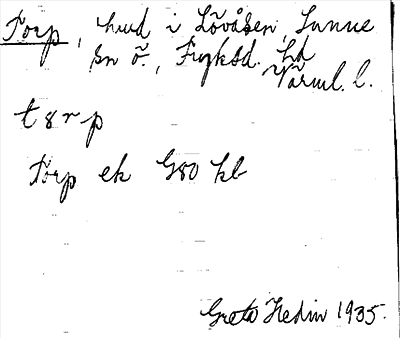 Torp, hmd i Lövåsen, Sunne
sn ö., Fryksd. hd
Värml. l.
t 8 r p
Torp ek G80 kb
Greta Hedin 1935.